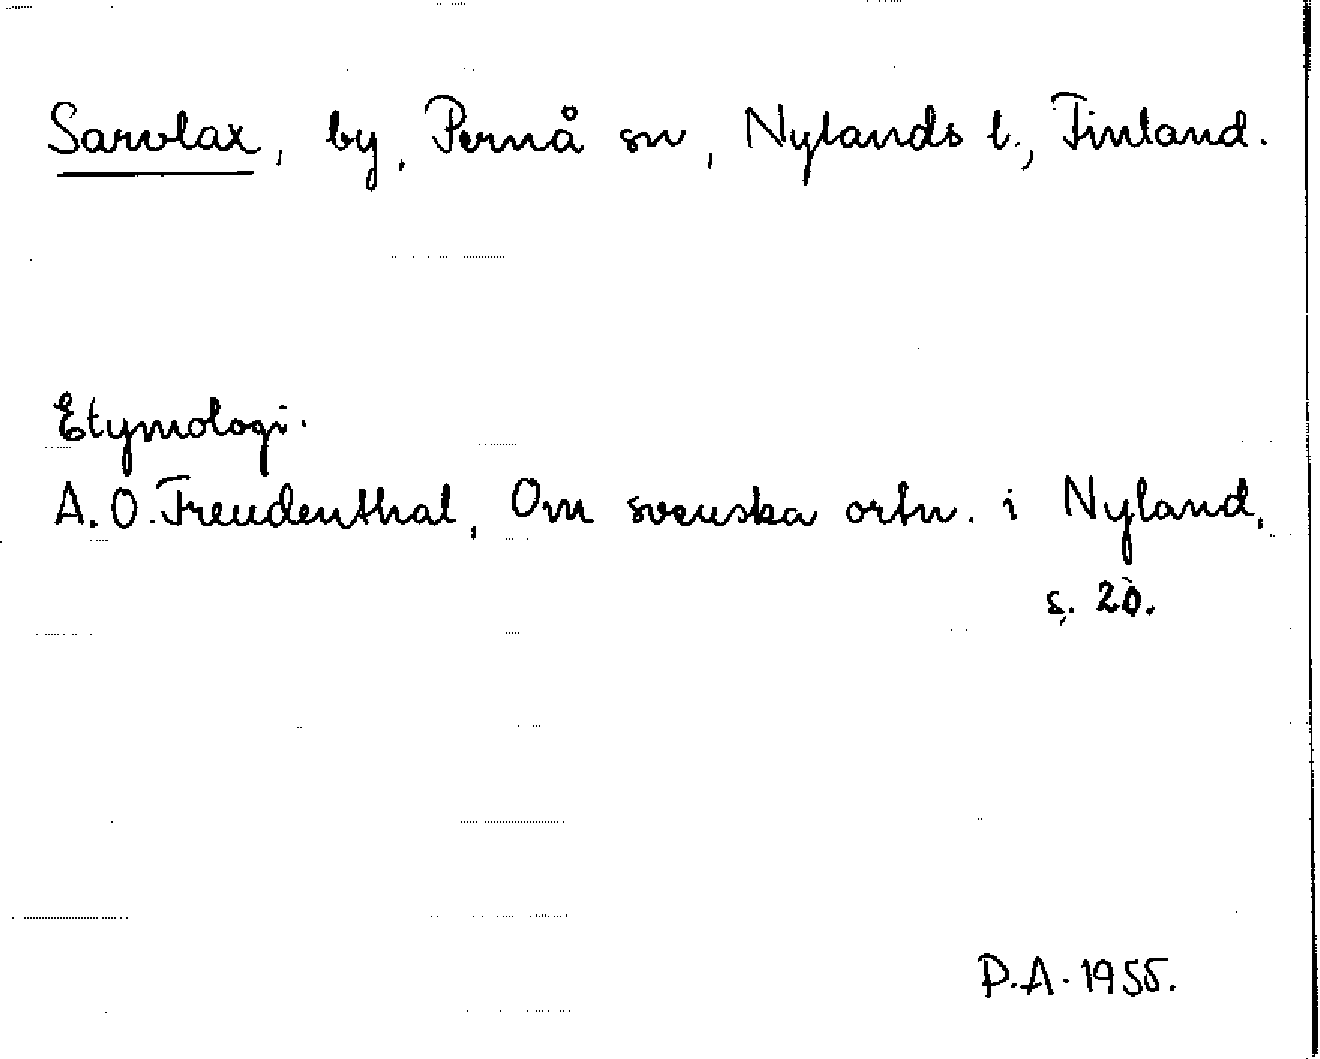 Sarvlax, by, Pernå sn, Nylands l., Finland.
Etymologi.
A. O. Freudenthal, Om svenska ortn. i Nyland,
s. 20.
P.A. 1955.